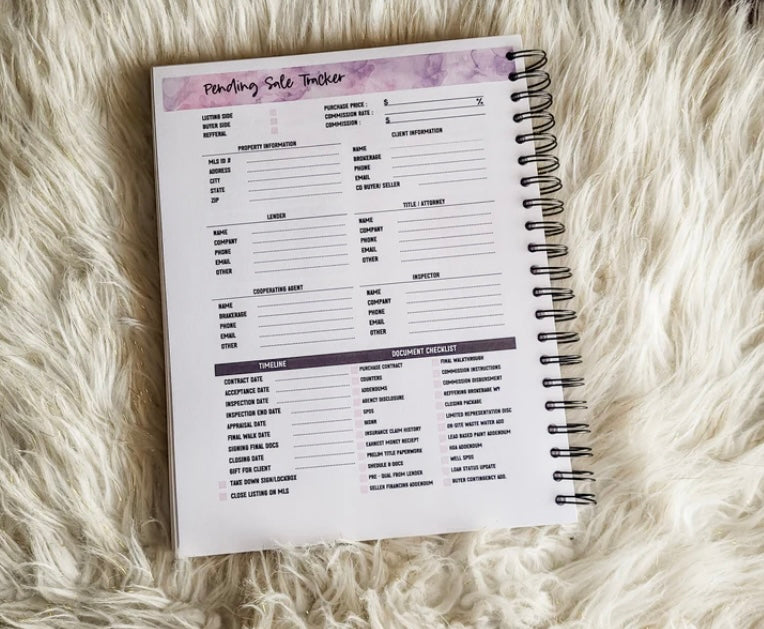 Pending Sale Tracker
LISTING SIDE
BUYER SIDE
REFFERAL
PURCHASE PRICE : $
COMMISSION RATE : %
COMMISSION : $
PROPERTY INFORMATION
MLS ID #
ADDRESS
CITY
STATE
ZIP
CLIENT INFORMATION
NAME
BROKERAGE
PHONE
EMAIL
CO BUYER/ SELLER
LENDER
NAME
COMPANY
PHONE
EMAIL
OTHER
TITLE / ATTORNEY
NAME
COMPANY
PHONE
EMAIL
OTHER
COOPERATING AGENT
NAME
BROKERAGE
PHONE
EMAIL
OTHER
INSPECTOR
NAME
COMPANY
PHONE
EMAIL
OTHER
TIMELINE
CONTRACT DATE
ACCEPTANCE DATE
INSPECTION DATE
INSPECTION END DATE
APPRAISAL DATE
FINAL WALK DATE
SIGNING FINAL DOCS
CLOSING DATE
GIFT FOR CLIENT
TAKE DOWN SIGN/LOCKBOX
CLOSE LISTING ON MLS
DOCUMENT CHECKLIST
PURCHASE CONTRACT
COUNTERS
ADDENDUMS
AGENCY DISCLOSURE
SPDS
INSURANCE CLAIM HISTORY
EARNEST MONEY RECIEPT
PRELIM TITLE PAPERWORK
SHEDULE B DOCS
PRE - QUAL FROM LENDER
SELLER FINANCING ADDENDUM
FINAL WALKTHROUGH
COMMISSION INSTRUCTIONS
COMMISSION DISBURSMENT
REFFERING BROKERAGE W9
CLOSING PACKAGE
LIMITED REPRESENTATION DISC
ON-SITE WASTE WATER ADD
LEAD BASED PAINT ADDENDUM
HOA ADDENDUM
WELL SPDS
LOAN STATUS UPDATE
BUYER CONTINGENCY ADD.